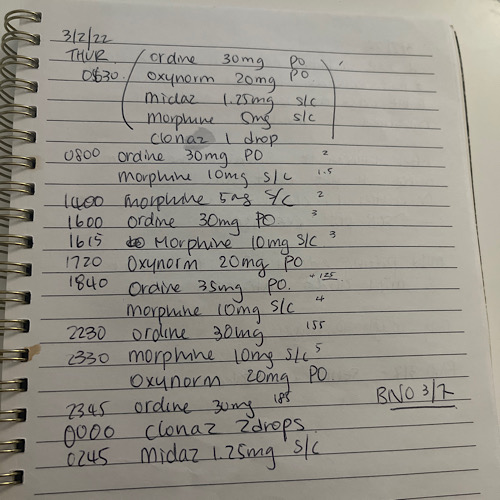 3/2/22
THUR. ( ordine 30mg PO
0530. oxynorm 20mg PO
midaz 1.25mg s/c
morphine 5mg s/c )
clonaz 1 drop
0800 ordine 30mg PO 2
morphine 10mg s/c 1.5
1400 morphine 5mg s/c 2
1600 ordine 30mg PO. 3
1615 morphine 10mg s/c 3
1720 oxynorm 20mg PO
1840 ordine 35mg PO. +125
morphine 10mg s/c 4
2230 ordine 30mg 155
2330 morphine 10mg s/c 5
oxynorm 20mg PO
2345 ordine 30mg 185 BNO 3/7
0000 clonaz 2drops.
0245 midaz 1.25mg s/c